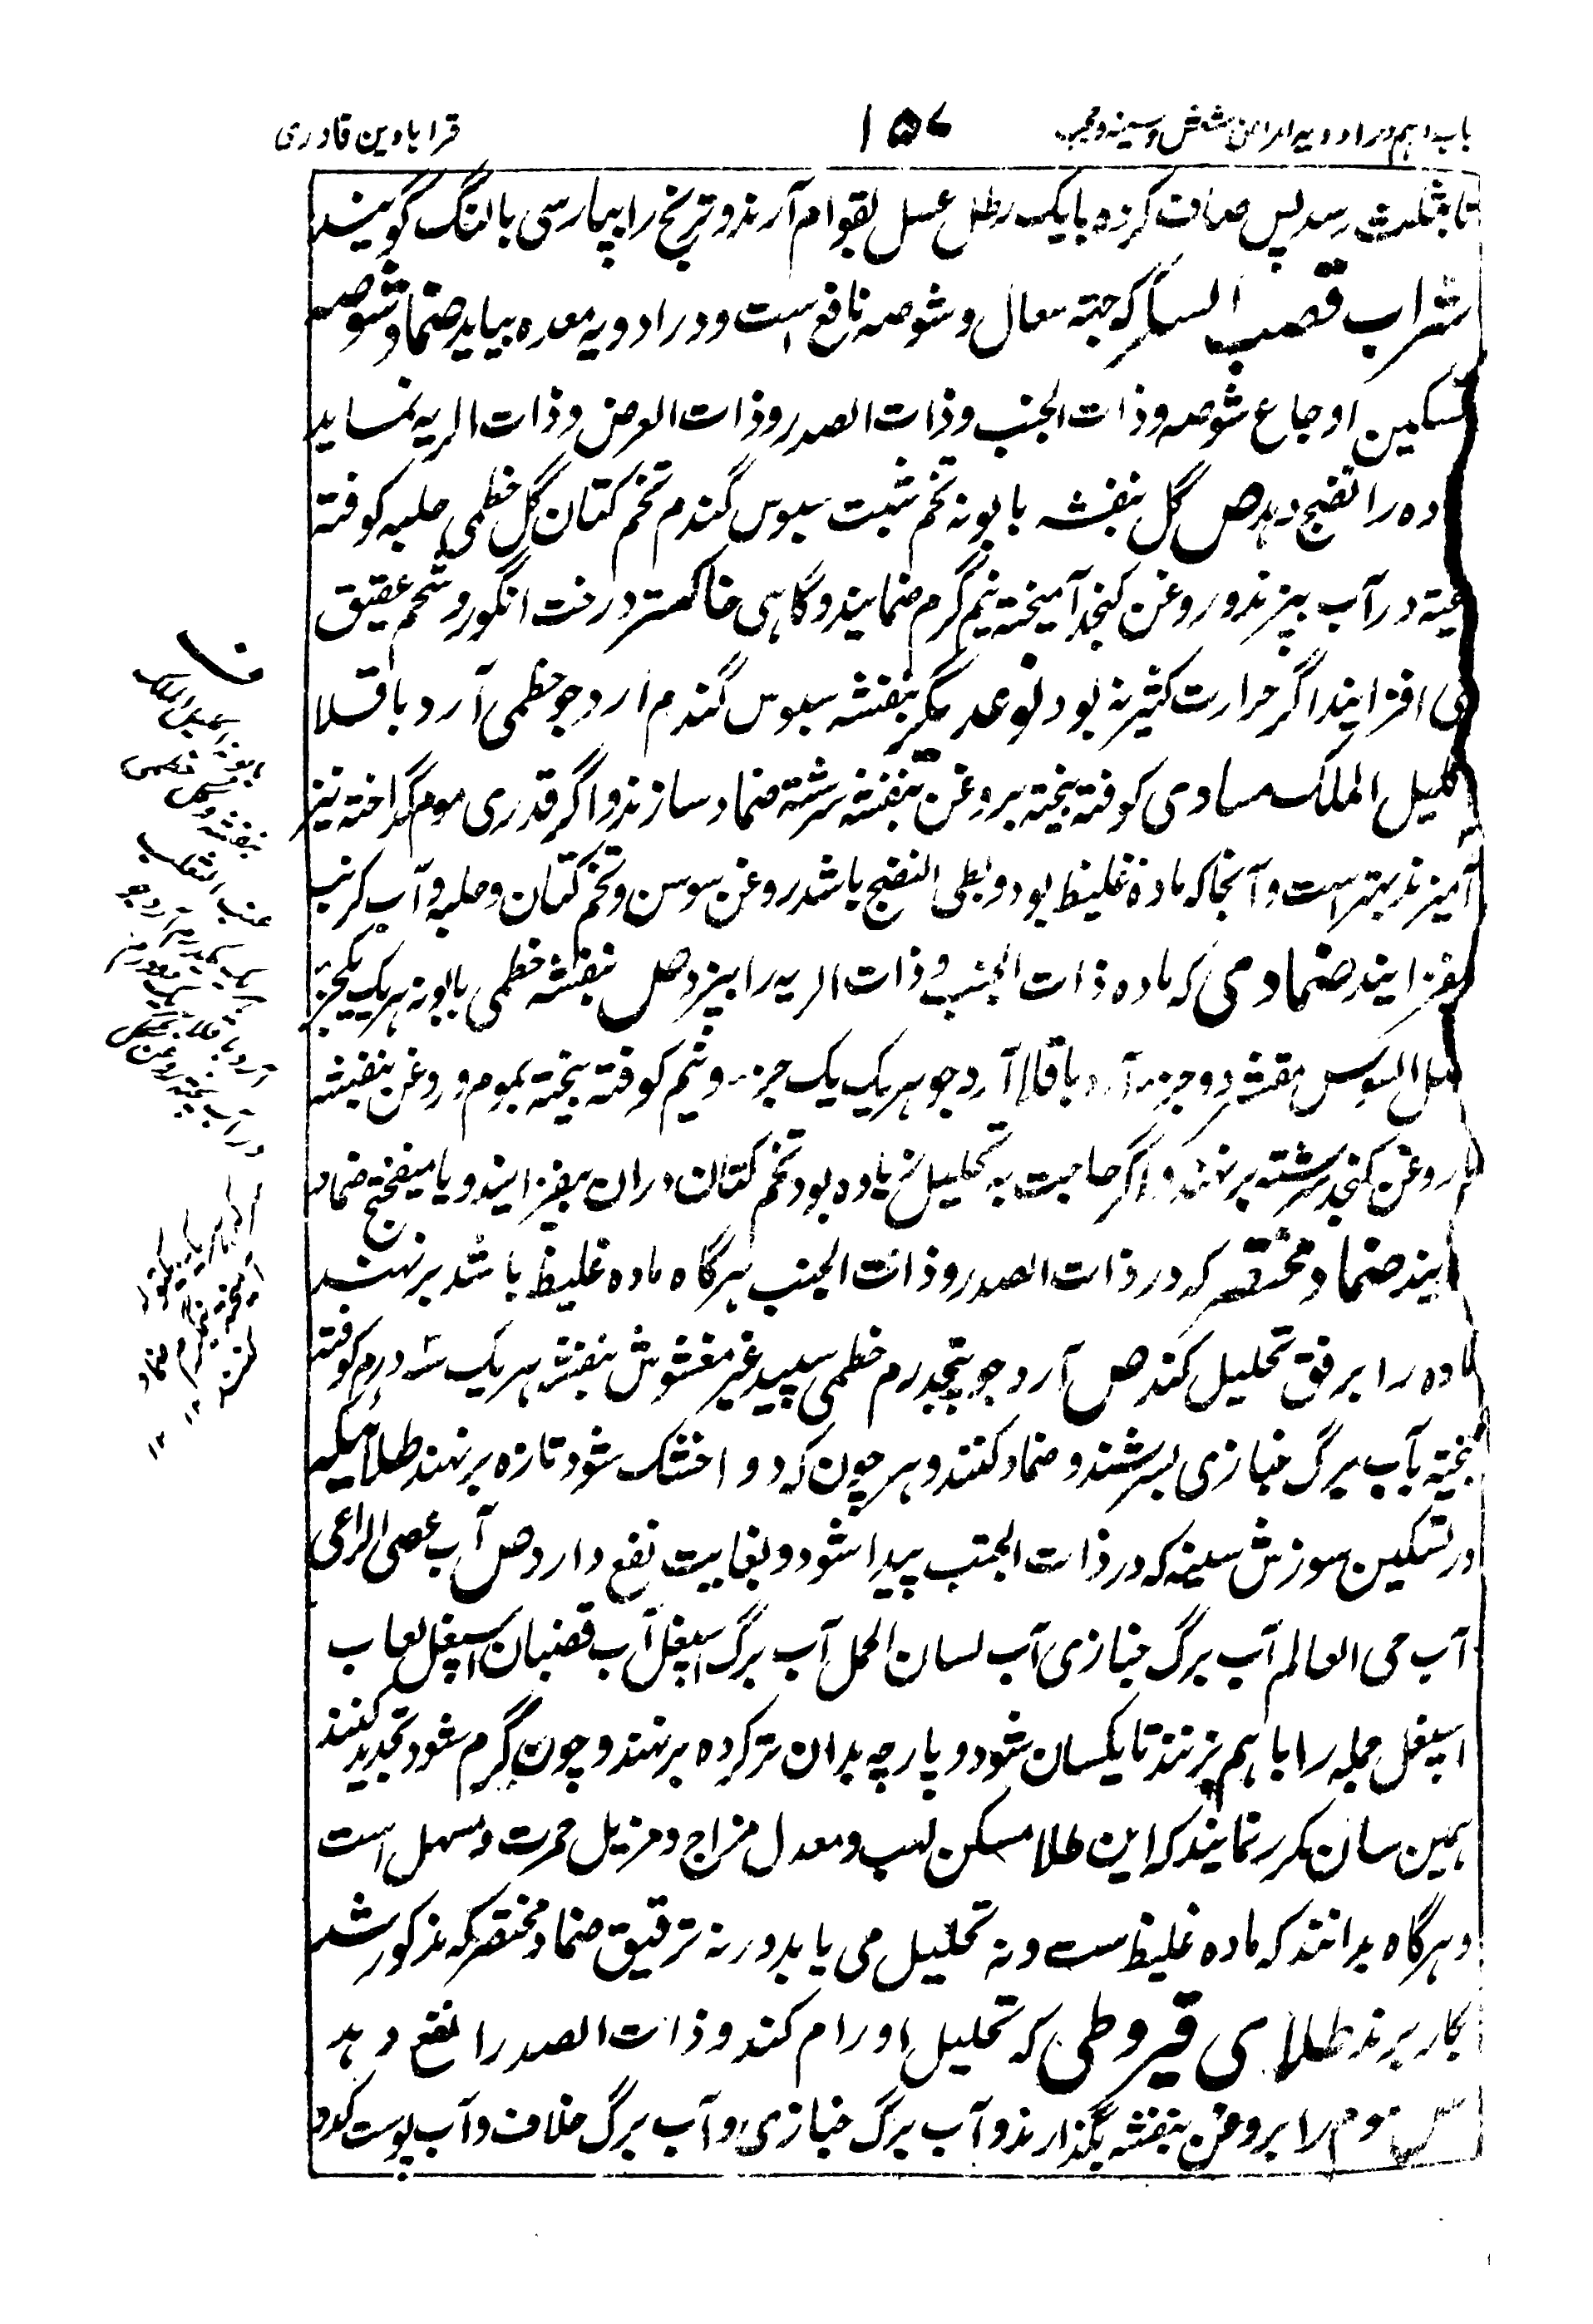 باب دهم در ادویه امراض شش و سینه و جنب
۱۵۷
قرابادین قادری
تا بثلث رسد پس صاف کرده با یک رطل عسل بقوام آرند و ترنج را بپارسی بالنگ گویند
شراب قصب السکر که جهته سعال و شوصه نافع است و در ادویه معده بیاید ضماد شوصه
تسکین اوجاع شوصه و ذات الجنب و ذات الصدر و ذات العرض و ذات الریه نماید
ماده را نضج دهد ص گل بنفشه بابونه تخم شبت سبوس گندم تخم کتان گل خطمی حلبه کوفته
بیخته در آب بپزند و روغن کنجد آمیخته نیم گرم ضمایند و گاهی خاکستر درخت انگور و شحم عتیق
می افزایند اگر حرارت کثیر نه بود نوعدیگر بنفشه سبوس گندم ارد جو خطمی آرد باقلا
اکلیل الملک مساوی کوفته بیخته بروغن بنفشه سرشته ضماد سازند و اگر قدری موم گداخته نیز
آمیزند بهتر است و آنجا که ماده غلیظ بود و بطی النضج باشد روغن سوسن و تخم کتان و حلبه و آب کرنب
بفزایند ضمادمی که ماده ذات الجنب و ذات الریه را بپزد ص بنفشه خطمی بابونه هر یک یکجزء
اصل السوس مقشر دو جزء آرد باقلا آرد جو هر یک یک جزء و نیم کوفته بیخته بموم و روغن بنفشه
یا روغن کنجد سرشته برنهند و اگر حاجت به تحلیل زیاده بود تخم کتان دران بیفزایند و یا میفختج ضماد
نمایند ضماد مختصر که در ذات الصدر و ذات الجنب هرگاه ماده غلیظ باشد برنهند
ماده را برفق تحلیل کند ص آرد جو پنجدرم خطمی سپید غیر مغشوش بنفشه هر یک سه درم کوفته
بیخته بآب برگ خبازی بسرشند و ضماد کنند و هر چون که دوا خشک شود تازه برنهند طلائیکه
در تسکین سوزش سینه که در ذات الجنب پیدا شود و بغایت نفع دارد ص آب عصی الراعی
آب حی العالم آب برگ خبازی آب لسان الحمل آب برگ اسپغل آب قضبان اسپغل لعاب
اسپغل جمله را باهم بزنند تا یکسان شود و پارچه بدان تر کرده برنهند و چون گرم شود تجدید کنند
همین سان مکرر نمایند که این طلا مسکن لهب و معدل مزاج و مزیل حمرت و مسهل است
و هرگاه بدانند که ماده غلیظ ست و نه تحلیل می یابد و نه ترقیق ضماد مختصر که مذکور شد
بکار برند طلای قیروطی که تحلیل اورام کند و ذات الصدر را نفع دهد
ص موم را بروغن بنفشه بگذارند و آب برگ خبازی و آب برگ خلاف و آب پوست کدو
بابونه اکلیل الملک
بنفشه و گل خطمی
عنب الثعلب
آرد باقلا
در آب پخته روغن
آمیخته نیم گرم ضماد
کنند ۱۲